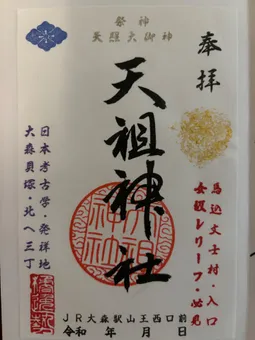 奉拝
祭神
天照大御神
天祖神社
馬込文士村・入口
全段レリーフ・必見
日本考古学・発祥地
大森貝塚・北へ三丁
JR大森駅山王西口前
令和 年 月 日